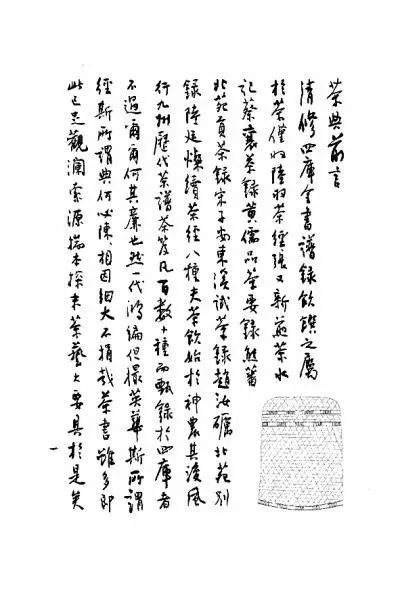 茶典前言
清修四庫全書譜錄飲饌之屬
於茶僅收陸羽茶經張又新煎茶水
記蔡襄茶錄黃儒品茶要錄熊蕃
北苑貢茶錄宋子安東溪試茶錄趙汝礪北苑別
錄陸廷燦續茶經八種夫茶飲始於神農其後風
行九州歷代茶譜茶笈凡百數十種而甄錄於四庫者
不過爾爾何其廉也然一代鴻編但撮英華斯所謂
經斯所謂典何必陳〻相因細大不捐哉茶書雖多即
此已足觀瀾索源揣本探末茶藝之要具於是矣
一